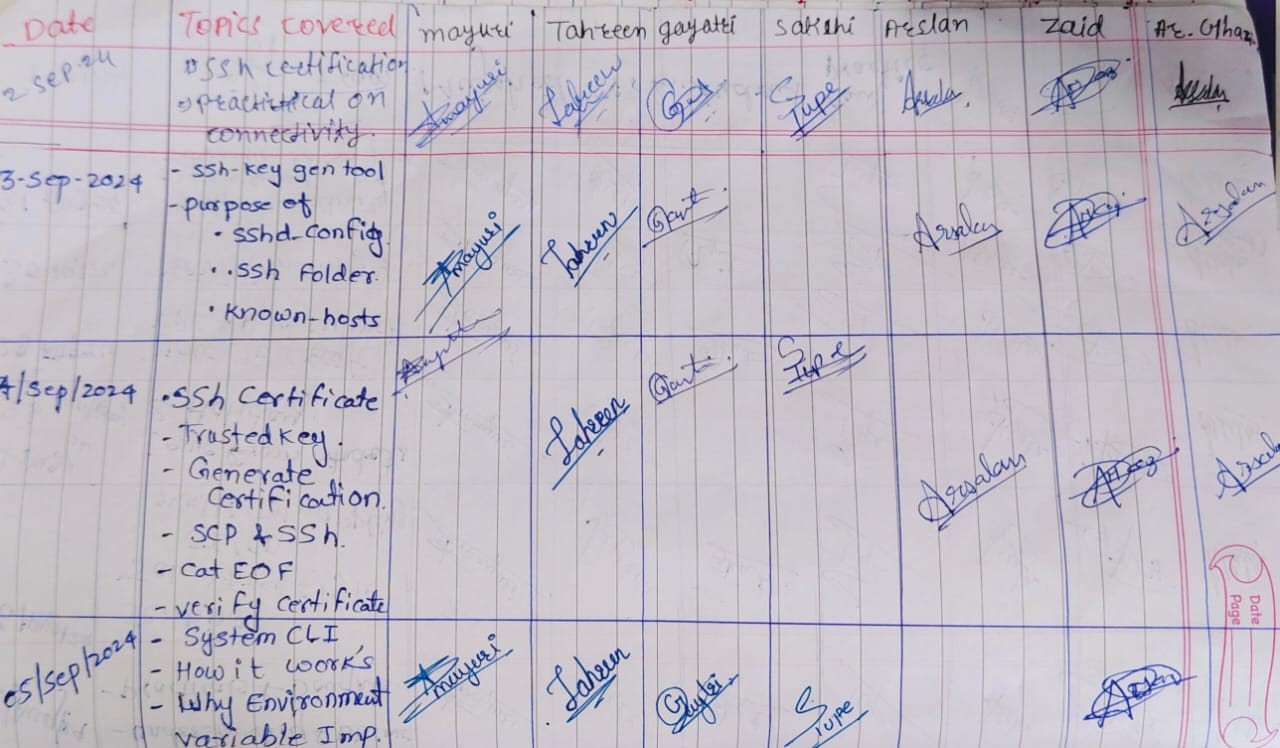 Date Topics covered mayuri Tahreen gayatri Sakshi Arslan Zaid Ar. Ghaz
2 sep.24 ssh certification
practitical on
connectivity.
mayuri Tahreen Tupe
3-Sep-2024 - ssh-key gen tool
- purpose of
• sshd-config
• .ssh folder.
• known-hosts
mayuri Tahreen Arsalan Arsalan
4/Sep/2024 • SSh Certificate
- Trusted key.
- Generate
Certification.
- SCP & SSh.
- Cat EOF
- verify certificate
Tahreen Tupe Arsalan Arsala
05/Sep/2024 - System CLI
- How it work's
- Why Environment
variable Imp.
mayuri Tahreen Tupe
Date
Page